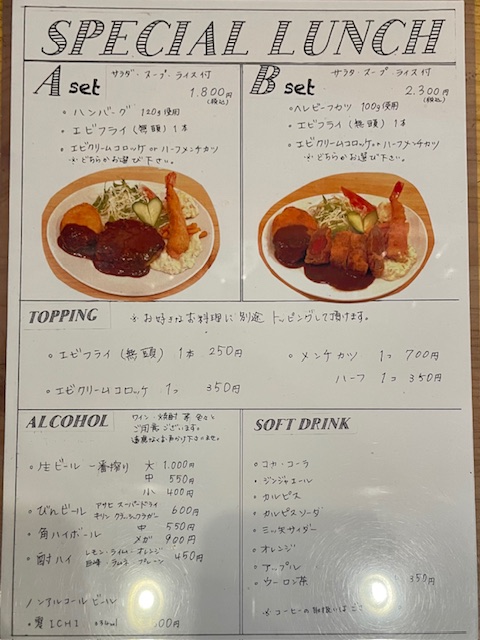 SPECIAL LUNCH
A set
サラダ・スープ・ライス付
1.800円
(税込)
。ハンバーグ 120g使用
。エビフライ(無頭) 1本
。エビクリームコロッケ or ハーフメンチカツ
※どちらかお選び下さい。
B set
サラダ・スープ・ライス付
2.300円
(税込)
。ヘレビーフカツ 100g使用
。エビフライ(無頭) 1本
。エビクリームコロッケ or ハーフメンチカツ
※どちらかお選び下さい。
TOPPING ※お好きなお料理に別途トッピングして頂けます。
。エビフライ(無頭) 1本 250円
。エビクリームコロッケ 1コ 350円
。メンチカツ 1コ 700円
ハーフ 1コ 350円
ALCOHOL
ワイン・焼酎
ご用意ございます。
遠慮なくお声かけ下さいませ。
。生ビール 一番搾り 大 1.000円
中 550円
小 400円
。びんビール アサヒ スーパードライ
キリン クラシックラガー 600円
。角ハイボール 中 550円
メガ 900円
。酎ハイ レモン・ライム・オレンジ
巨峰・ラムネ・プレーン 450円
ノンアルコールビール
。零ICHI 334ml 500円
SOFT DRINK
。コカ・コーラ
。ジンジャエール
。カルピス
。カルピスソーダ
。三ッ矢サイダー
。オレンジ
。アップル
。ウーロン茶 350円
※コーヒーの取扱いはござ